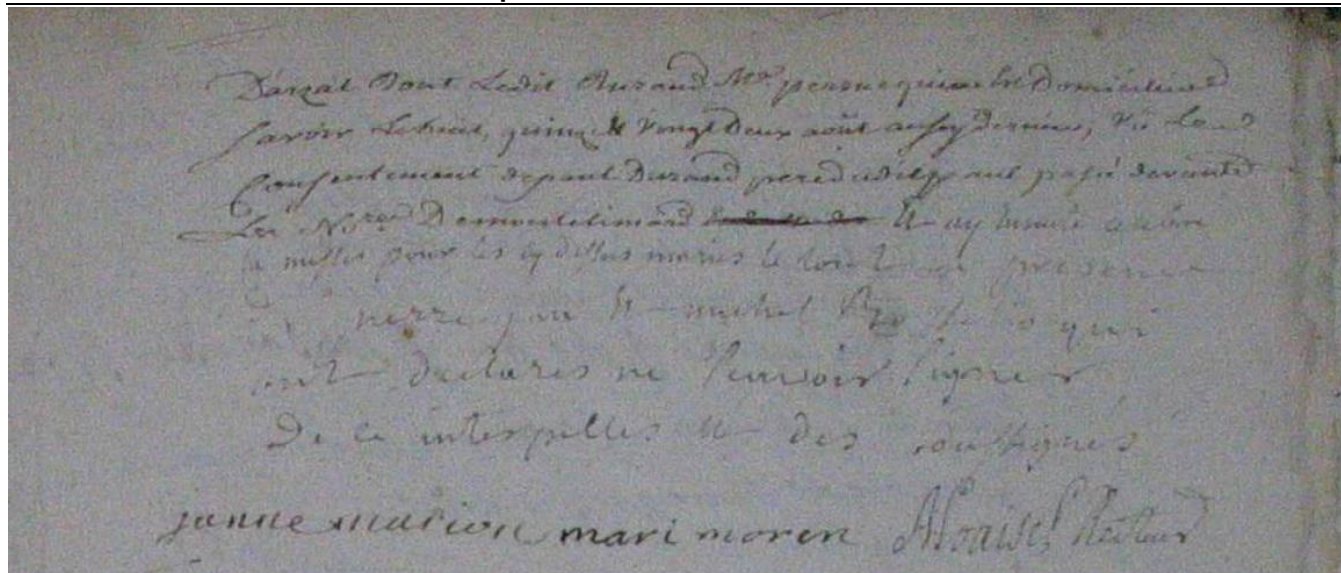 Darzat Dont Ledit Durand Mtre personne qui en est Domicilié
savoir Lehuit, quinze & vingt Deux août aussy dernier, Vu Le
Consentement de paul Durand pere dudit paul passé devant
Les Nres De montelimard & ay ensuite celebré
la messe pour les cy dessus mariés le tout en presence
pierre & michel qui
ont declarés ne scavoir signer
De ce interpellés & des soussignés
janne marion mari moren Recteur